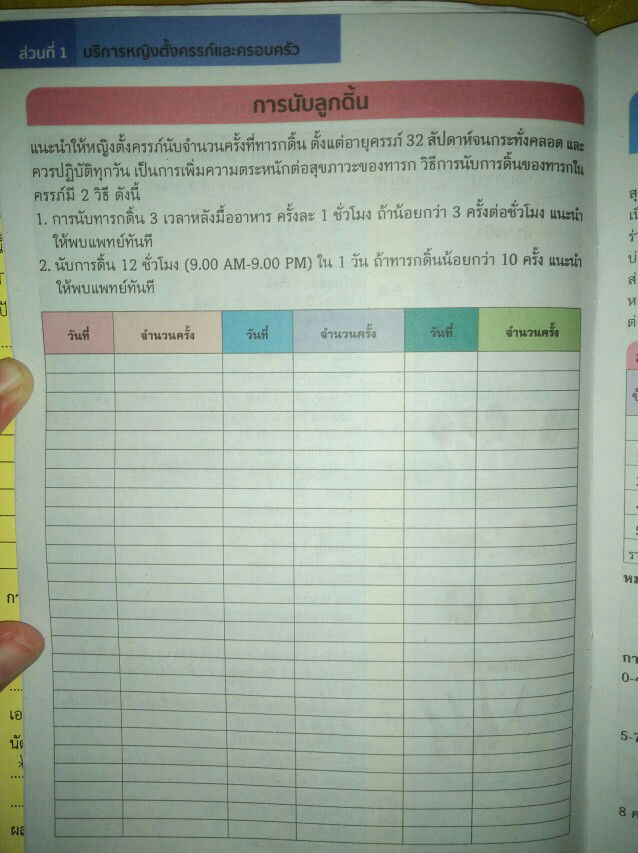 ส่วนที่ 1 บริการหญิงตั้งครรภ์และครอบครัว
การนับลูกดิ้น
แนะนำให้หญิงตั้งครรภ์นับจำนวนครั้งที่ทารกดิ้น ตั้งแต่อายุครรภ์ 32 สัปดาห์จนกระทั่งคลอด และ
ควรปฏิบัติทุกวัน เป็นการเพิ่มความตระหนักต่อสุขภาวะของทารก วิธีการนับการดิ้นของทารกใน
ครรภ์มี 2 วิธี ดังนี้
1. การนับทารกดิ้น 3 เวลาหลังมื้ออาหาร ครั้งละ 1 ชั่วโมง ถ้าน้อยกว่า 3 ครั้งต่อชั่วโมง แนะนำ
ให้พบแพทย์ทันที
2. นับการดิ้น 12 ชั่วโมง (9.00 AM-9.00 PM) ใน 1 วัน ถ้าทารกดิ้นน้อยกว่า 10 ครั้ง แนะนำ
ให้พบแพทย์ทันที
วันที่ จำนวนครั้ง วันที่ จำนวนครั้ง วันที่ จำนวนครั้ง